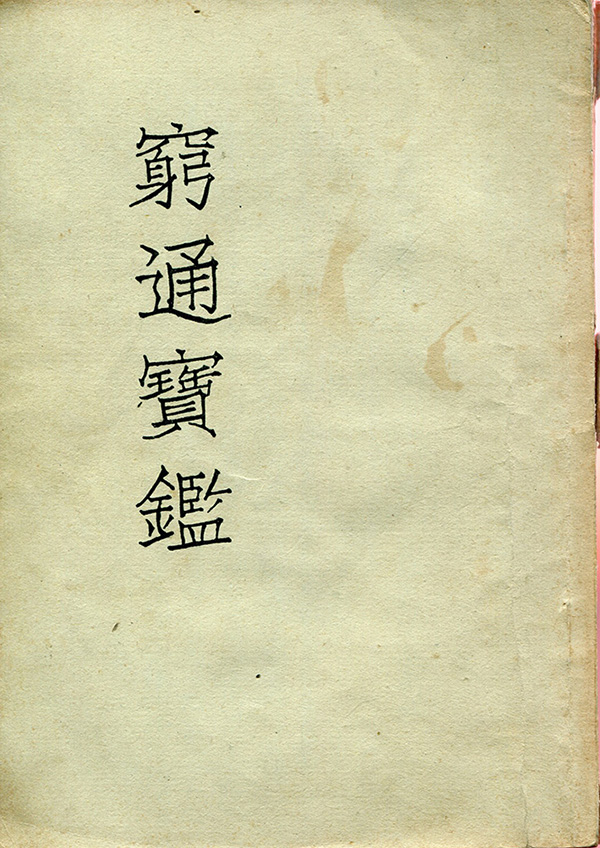 窮通寶鑑